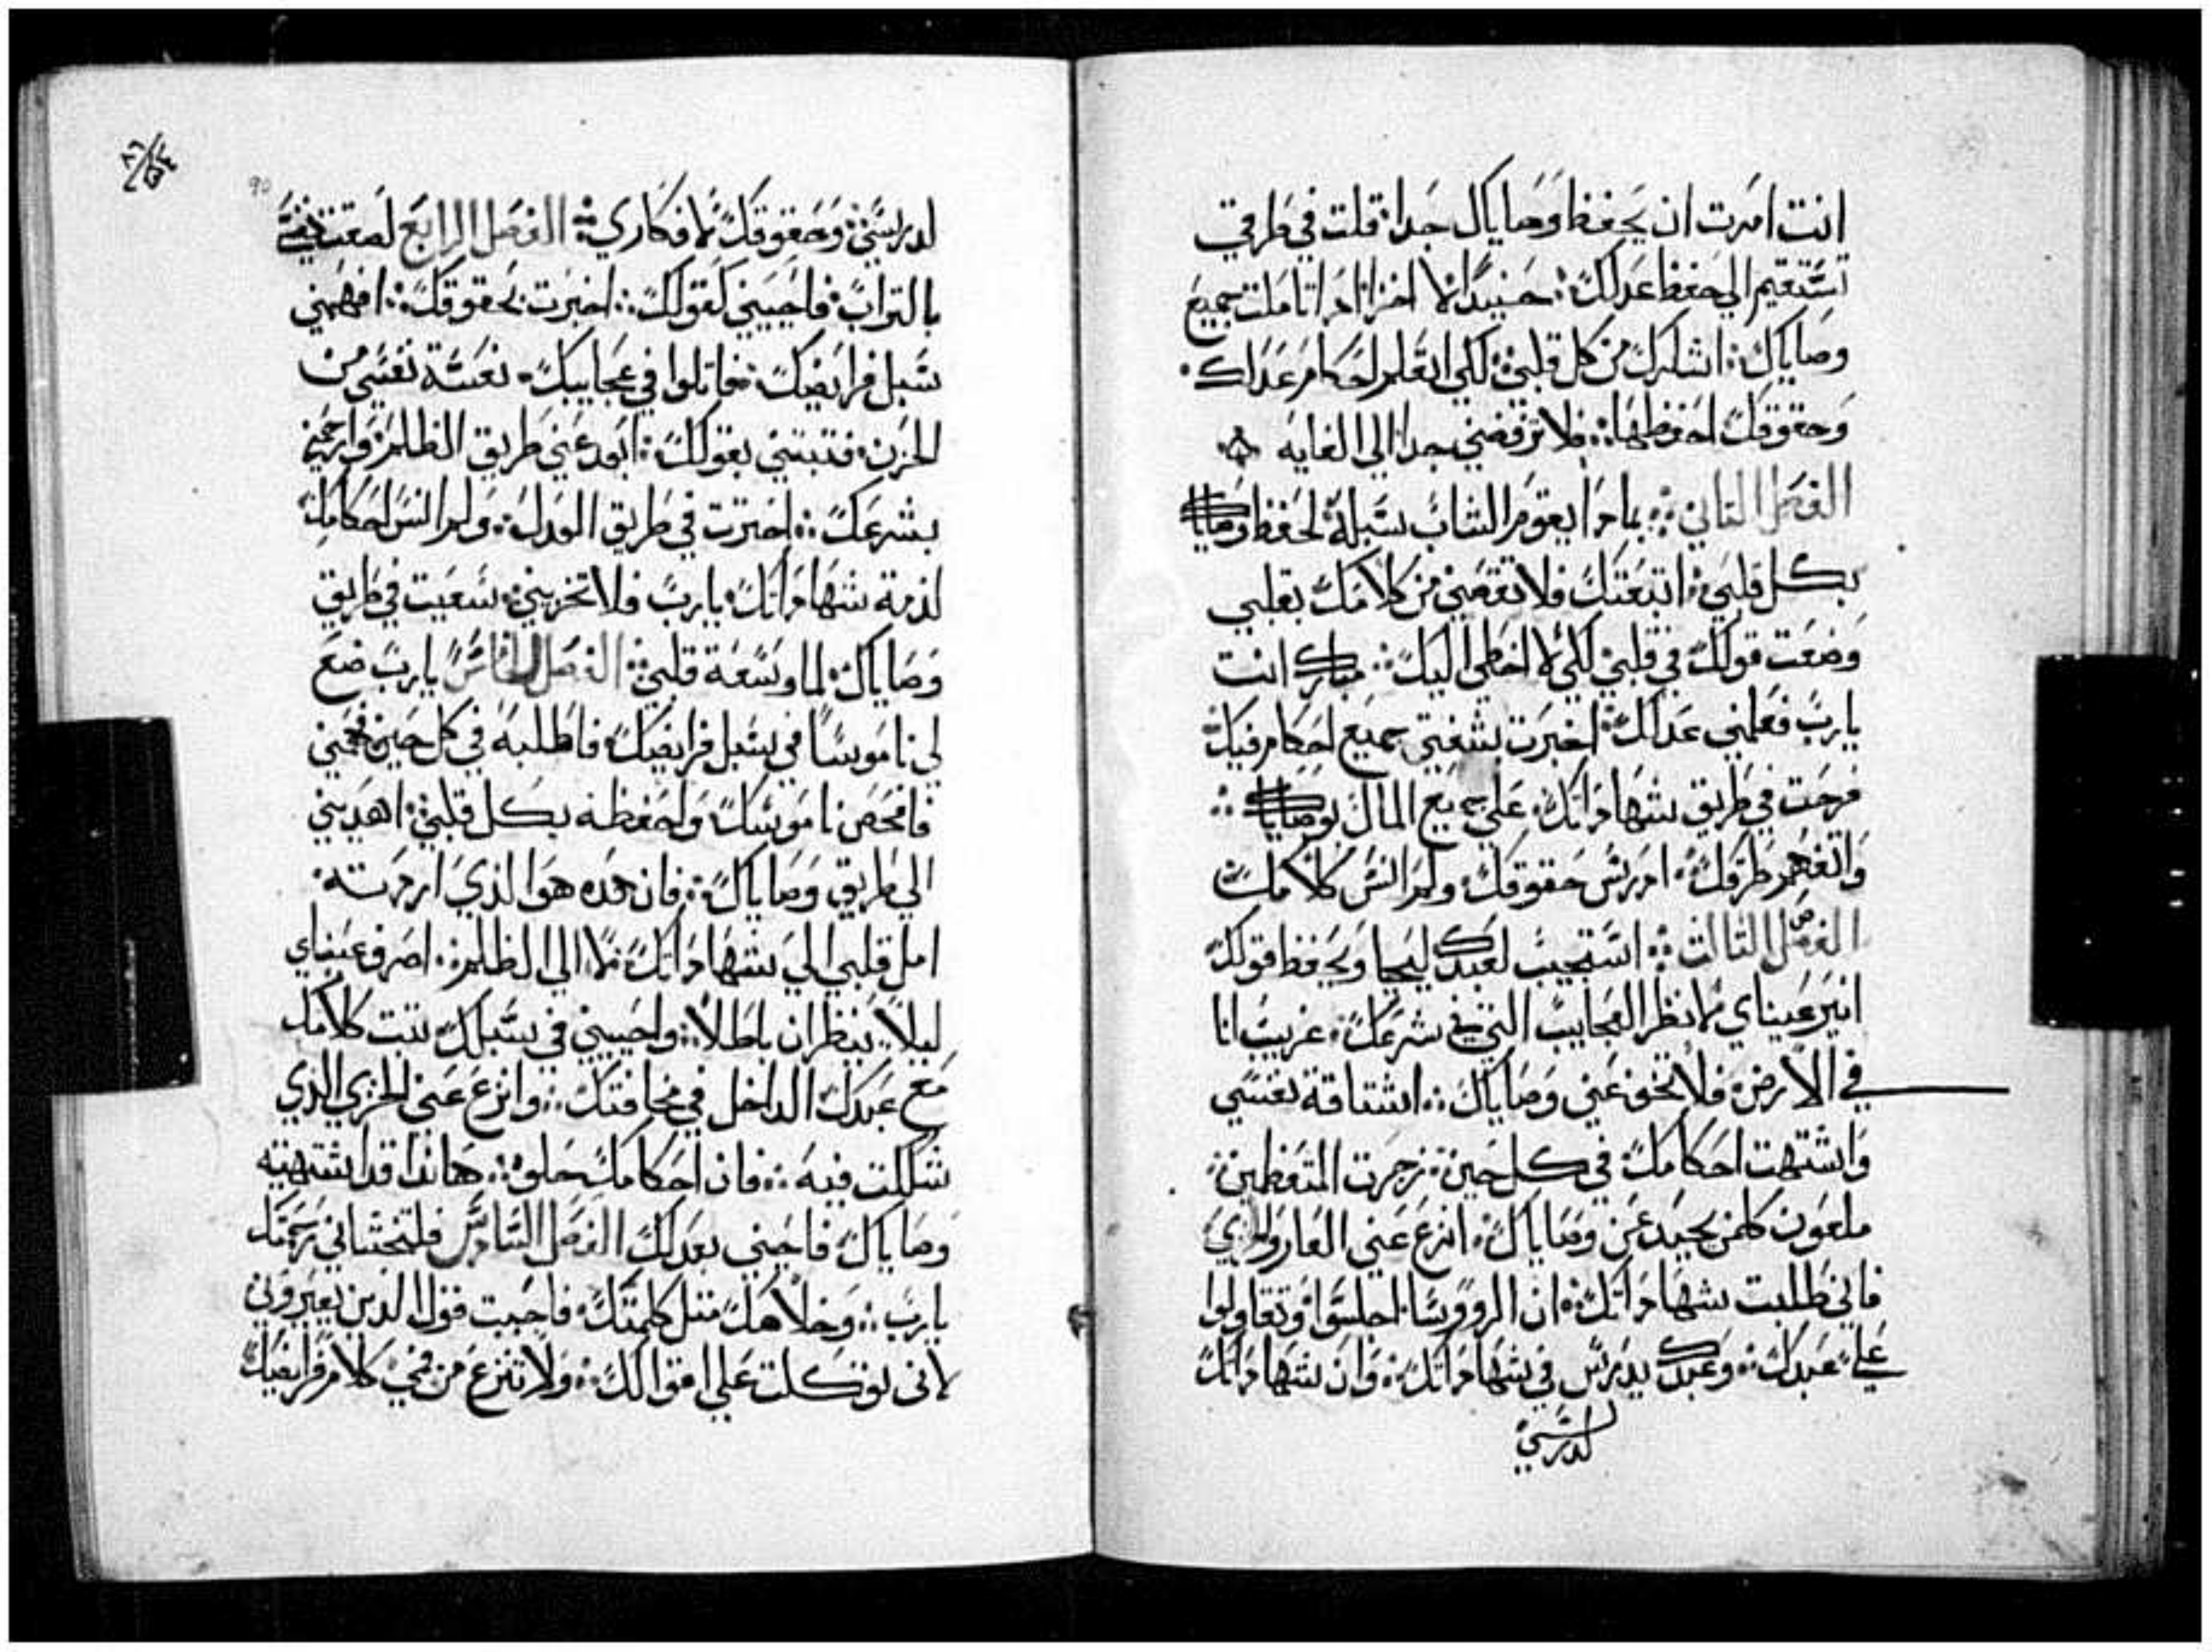 انت امرت ان يحفظ اوصاياك جدا؛ قلت في طرقي
تستقيم الي حفظ عدلك؛ حنيدا لا اخزا اذا تاملت جميع
وصاياك؛ اشكرك من كل قلبي؛ لكي اتعلم احكام عدلك
وحقوقك احفظها؛ فلا ترفضني جدا الي الغايه
الفصل التاني؛ بماذا يقوم الشاب سبله لحفظ وصاياك
بكل قلبي؛ اتبعتك فلا تقصني من كلامك بقلبي
وضعت قولك في قلبي لكي لا اخطي اليك؛ مبارك انت
يارب فعلمني عدلك؛ اخبرت بشفتي جميع احكام فيك
فرحت في طريق شهاداتك؛ علي جميع المال بوصاياك؛
واتفهم طرقك؛ ادرس حقوقك؛ ولم انس كلامك
الفصل التالت؛ استجيب لعبدك ليحيا ويحفظ اقولك
انير عيناي لانظر العجايب التي في شرعك؛ غريب انا
في الارض؛ فلا تخف عني وصاياك؛ اشتاقة نفسي
واشتهت احكامك في كل حين؛ زجرت المتعظمين؛
ملعون كلمن يحيد عن وصاياك؛ انزع عني العار والخزي
فاني طلبت شهاداتك؛ ان الرووسا اجلسوا وتقاولوا
علي عبدك؛ وعبدك يدرس في شهاداتك؛ وان شهاداتك
لدرسي
90
لدرسي؛ وحقوقك لافكاري؛ الفصل الرابع لصقت نفسي
بالتراب؛ فاحييني كقولك؛ اخبرت بحقوقك؛ افهمني
سبل فرايضك؛ فاتلوا في عجايبك؛ نعسة نفسي من
الحزن؛ فتبتني بقولك؛ ابعد عني طريق الظلم؛ وارحمني
بشرعك؛ اخترت في طريق العدل؛ ولم انس احكامك
لذمة شهاداتك؛ يارب فلا تخزيني؛ سعيت في طريق
وصاياك؛ لما وسعة قلبي؛ الفصل الخامس يارب ضع
لي ناموسا في سبل فرايضك؛ فاطلبه في كل حين؛ فهمني
فافحص ناموسك؛ واحفظه بكل قلبي؛ اهديني
الي طريق وصاياك؛ فان هده هوا الذي اردته؛
امل قلبي الي شهاداتك؛ لا الي الظلم؛ اصرف عيناي
ليلا ينظران باطلا؛ واحييني في سبلك؛ تبت كلامك
مع عبدك الداخل في مخافتك؛ وانزع عني الخزي الذي
شككت فيه؛ فان احكامك حلوه؛ هاندا قد اشتهيته
وصاياك؛ فاحيني بعدلك الفصل السادس فلتختاني رحمتك
يارب؛ وخلاصك متل كلمتك؛ فاجبت قول الدين يعيروني
لاني توكلت علي اقوالك؛ ولا تنزع من في كلام فرايضك